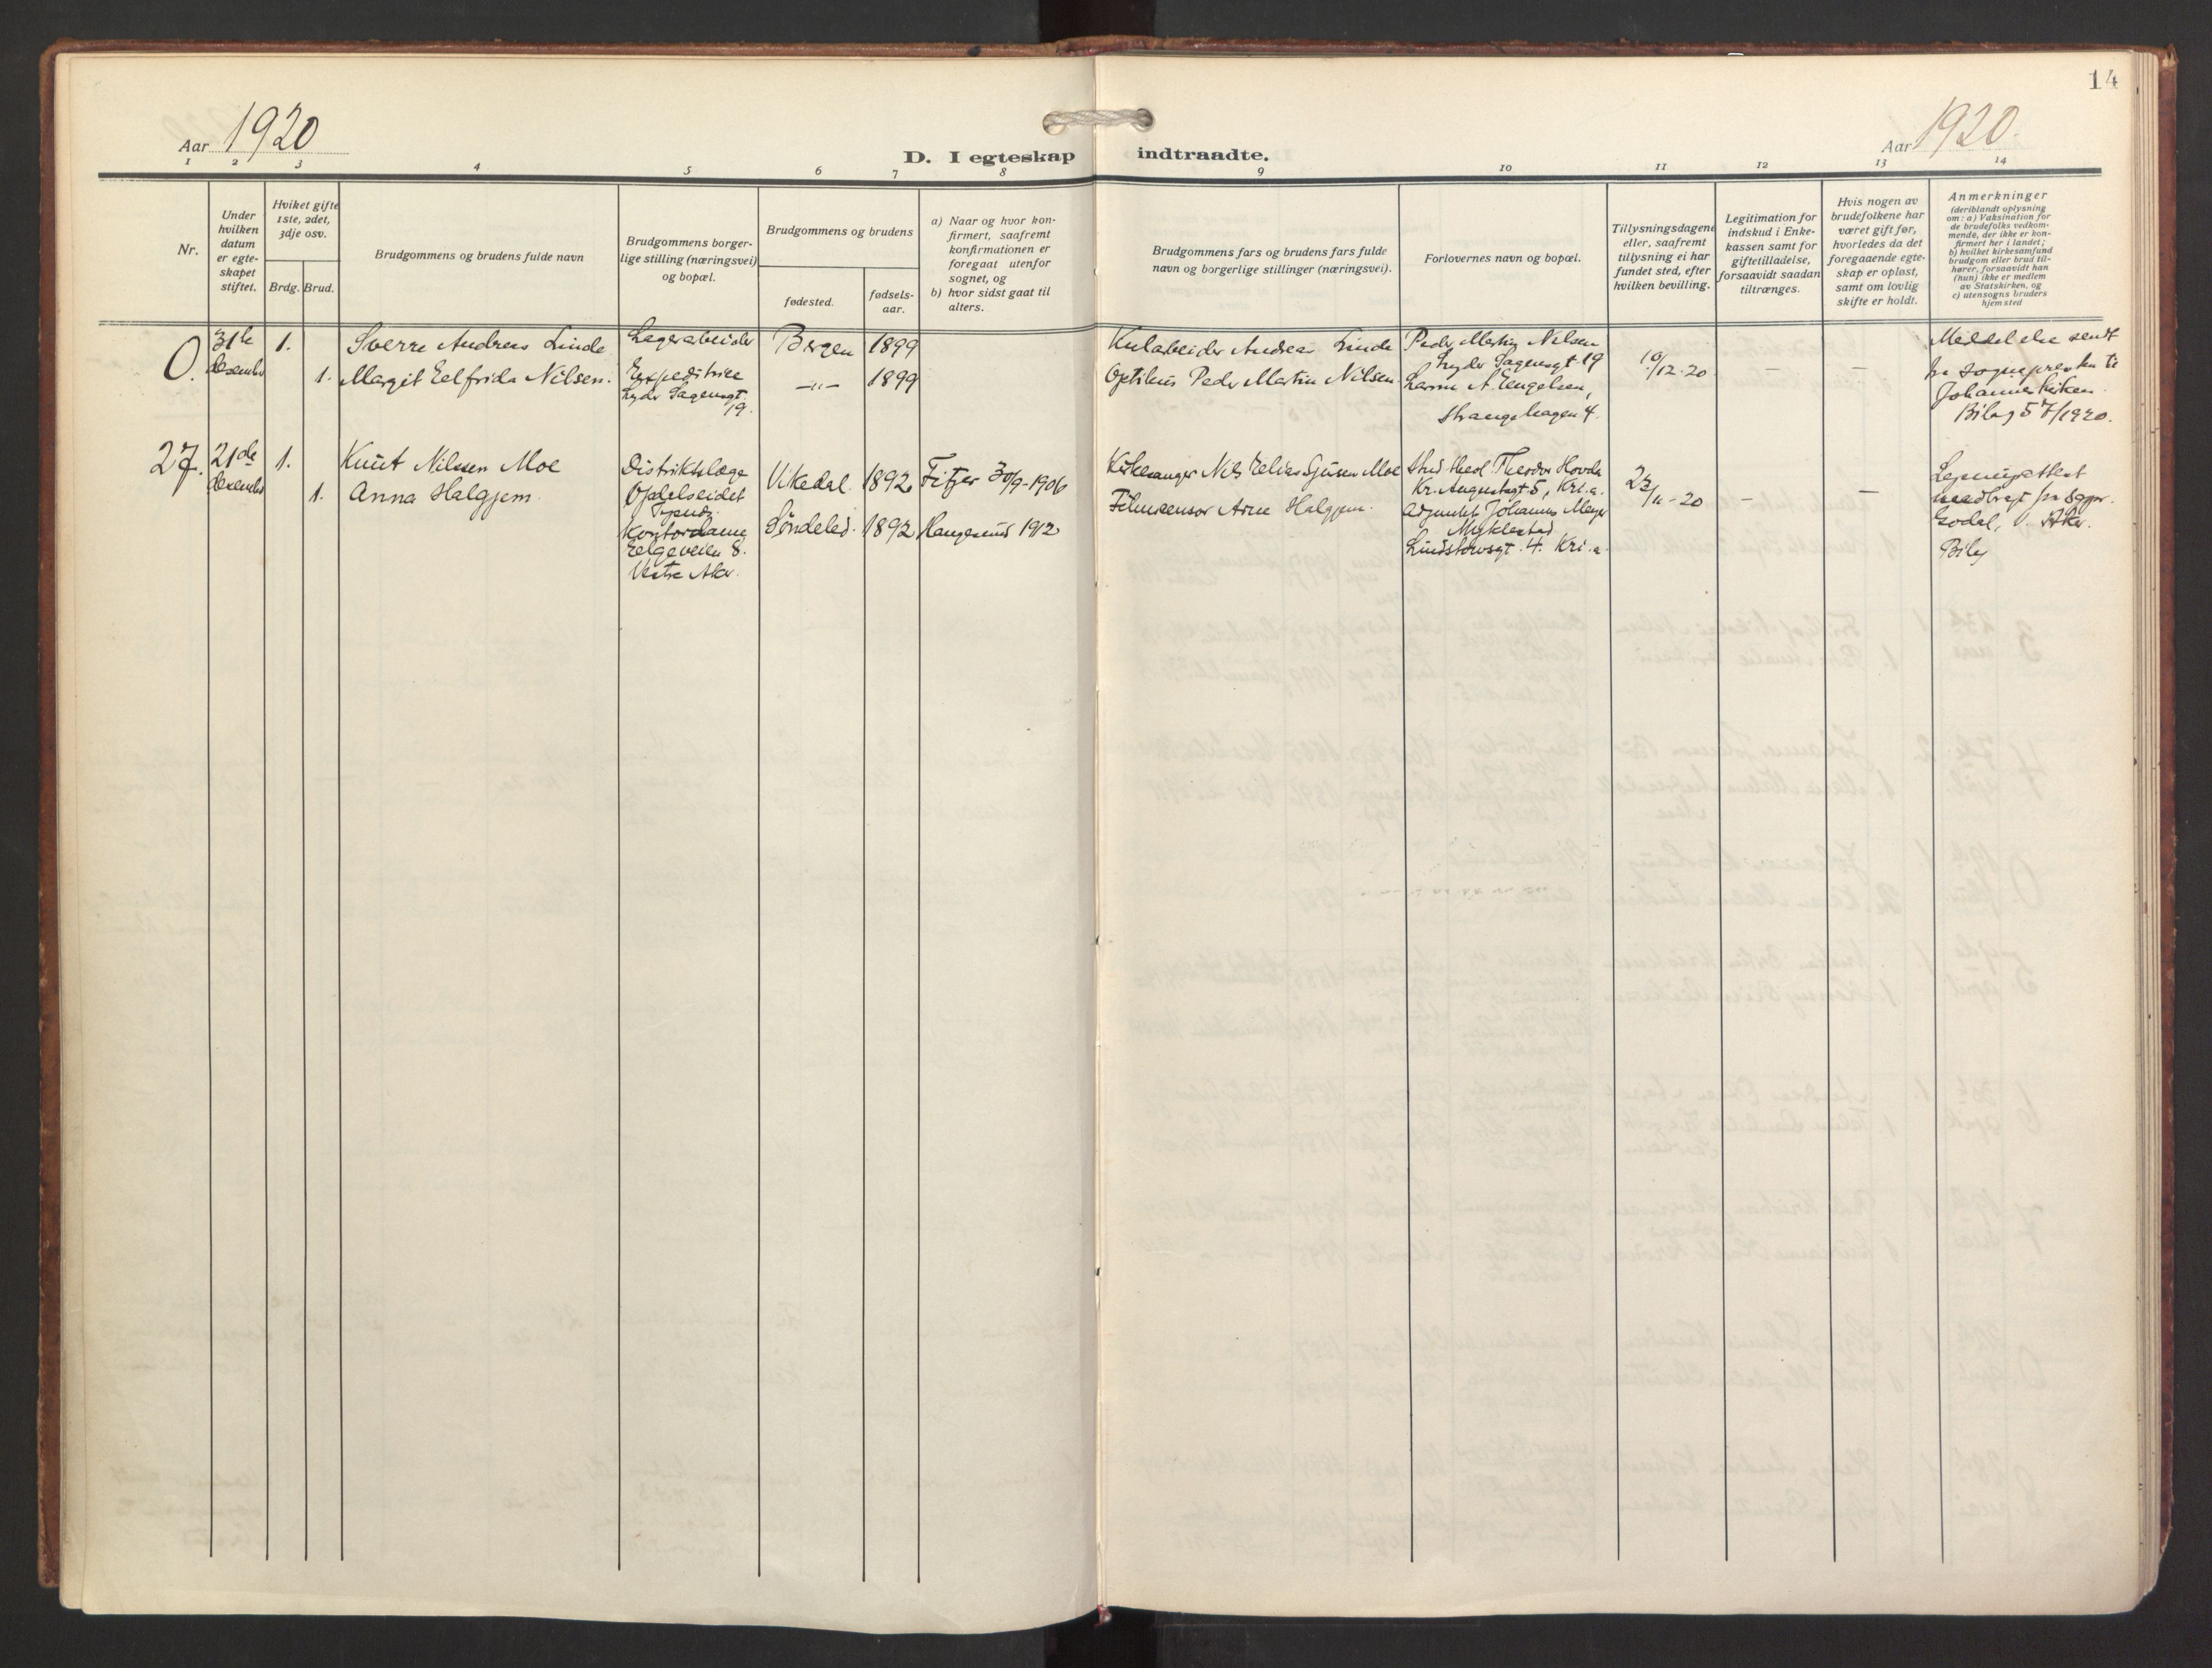 14
Aar 1920
Aar 1920.
D. I egteskap indtraadte.
1 2 3 4 5 6 7 8 9 10 11 12 13 14
Nr.
Under
hvilken
datum
er egte-
skapet
stiftet.
Hviket gifte
1ste, 2det,
3dje osv.
Brdg. Brud.
Brudgommens og brudens fulde navn
Brudgommens borger-
lige stilling (næringsvei)
og bopæl.
Brudgommens og brudens
fødested.
fødsels-
aar.
a) Naar og hvor kon-
firmert, saafremt
konfirmationen er
foregaat utenfor
sognet, og
b) hvor sidst gaat til
alters.
Brudgommens fars og brudens fars fulde
navn og borgerlige stillinger (næringsvei).
Forlovernes navn og bopæl.
Tillysningsdagene
eller, saafremt
tillysning ei har
fundet sted, efter
hvilken bevilling.
Legitimation for
indskud i Enke-
kassen samt for
giftetilladelse,
forsaavidt saadan
tiltrænges.
Hvis nogen av
brudefolkene har
været gift før,
hvorledes da det
foregaaende egte-
skap er opløst,
samt om lovlig
skifte er holdt.
Anmerkninger
(deriblandt oplysning
om: a) Vaksination for
de brudefolks vedkom-
mende, der ikke er kon-
firmert her i landet;
b) hvilket kirkesamfund
brudgom eller brud til-
hører, forsaavidt han
(hun) ikke er medlem
av Statskirken, og
c) utensogns bruders
hjemsted
0.
31te
desember
1.
1.
Sverre Andreas Linde
Margit Eelfrida Nilsen.
Lagerarbeider
Expeditrice
Lyder Sagensgt.
19.
Bergen
-"-
1899
1899
Kularbeider Andreas Linde
Optikus Peder Martin Nilsen
Peder Martin Nilsen
Lyder Sagensgt 19
A. Engelsen,
Strangehagen 4.
10/12-20
—
—
Meddelelse sendt
fra sognepresten til
Johanneskirken.
Bilag 57/1920.
27.
21de
desember
1.
1.
Knut Nilssen Moe
Anna Halgjem.
Distriktslæge
Opdelseidet
Kontordame
Helgeveien 8.
Vestre Aker.
Vikedal.
Søndeled.
1892
1892
Fitjer 30/9-1906
Haugesund 1912
Kirkesanger Nils Elias Moe
Filmcensor Arne Halgjem.
Stud. theol. Theodor Hovda
Kr. Augustsgt 5, Kri.a.
Adjunkt Johannes Meyer
Myklestad
Lindstowsgt. 4. Kri.a.
23/11-20
—
—
Lysningsattest
medbragt fra sogpr.
Godal, V. Aker.
Bilag